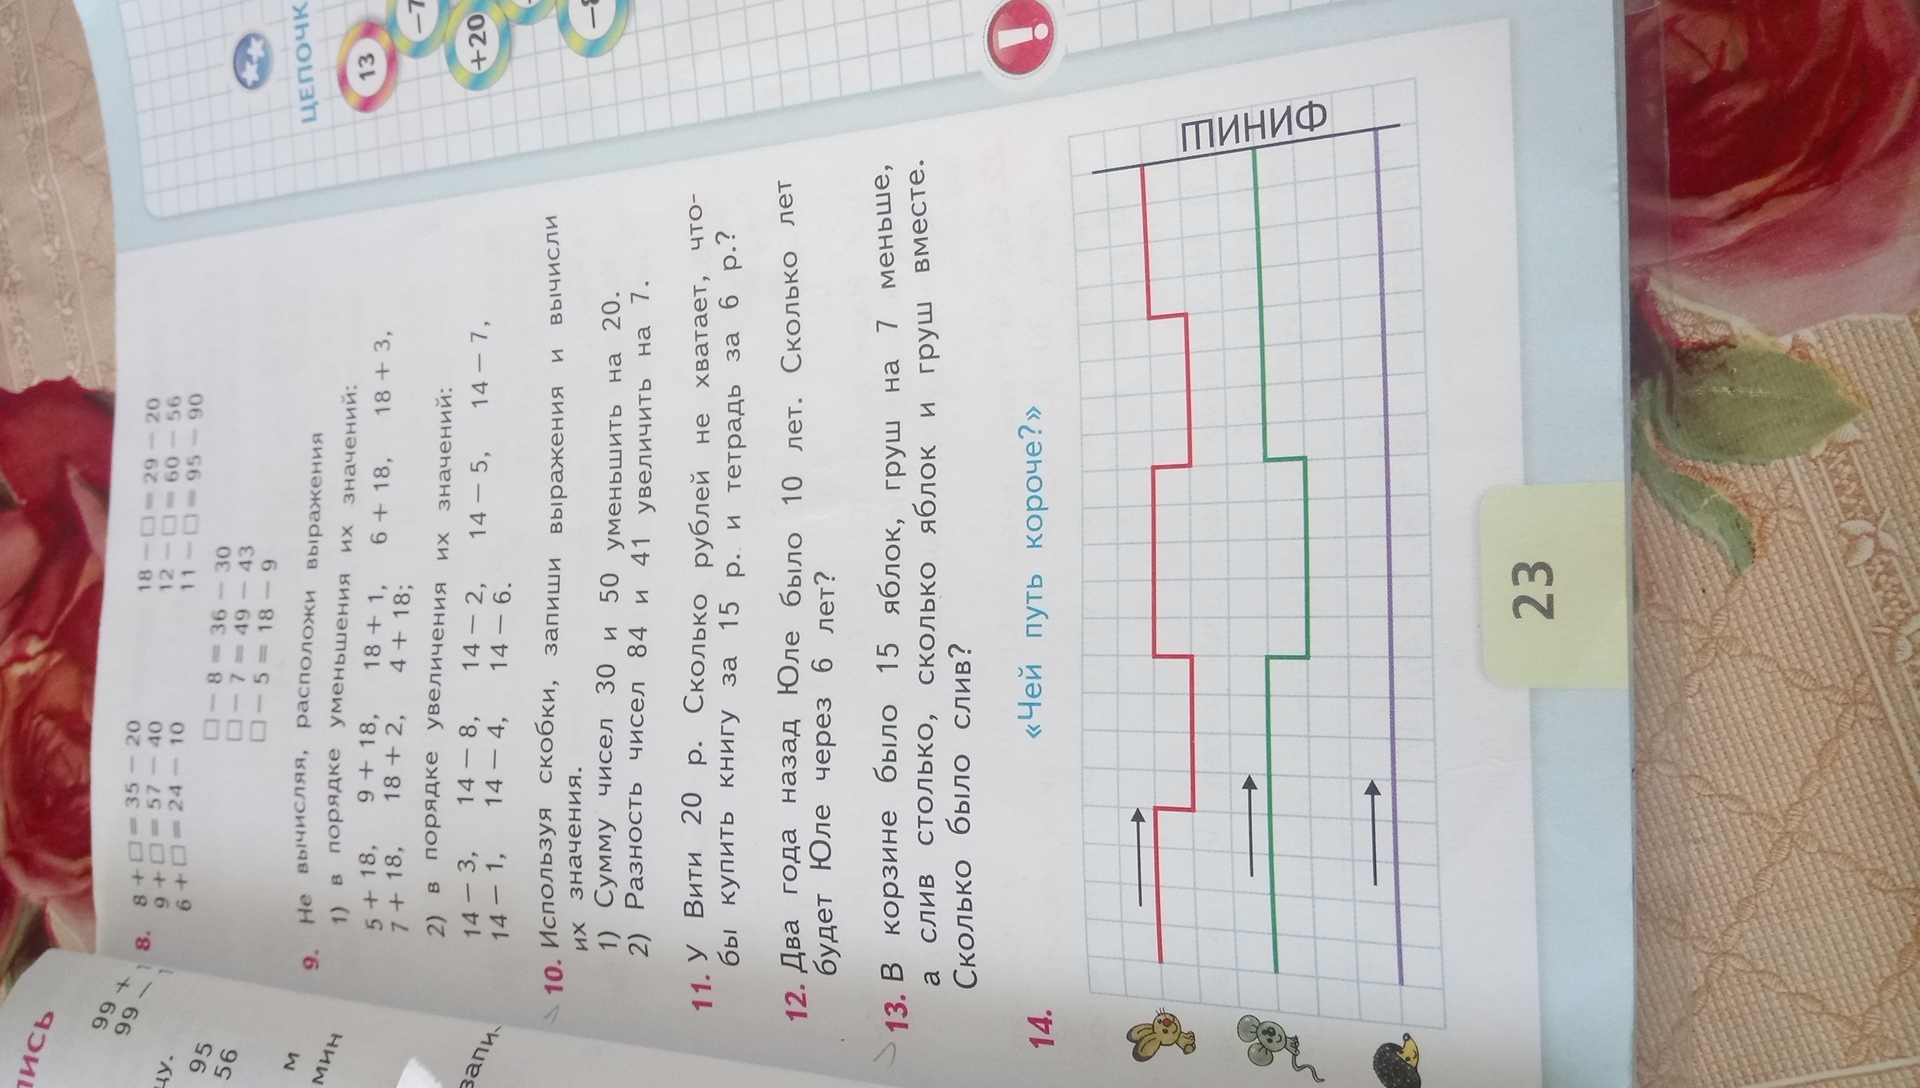 ПИСЬ
99 +
99 −
цу.
95
56
м
мин
запи
8. 8 + □ = 35 − 20
9 + □ = 57 − 40
6 + □ = 24 − 10
18 − □ = 29 − 20
12 − □ = 60 − 56
11 − □ = 95 − 90
□ − 8 = 36 − 30
□ − 7 = 49 − 43
□ − 5 = 18 − 9
9. Не вычисляя, расположи выражения
1) в порядке уменьшения их значений:
5 + 18, 9 + 18, 18 + 1, 6 + 18, 18 + 3,
7 + 18, 18 + 2, 4 + 18;
2) в порядке увеличения их значений:
14 − 3, 14 − 8, 14 − 2, 14 − 5, 14 − 7,
14 − 1, 14 − 4, 14 − 6.
10. Используя скобки, запиши выражения и вычисли
их значения.
1) Сумму чисел 30 и 50 уменьшить на 20.
2) Разность чисел 84 и 41 увеличить на 7.
11. У Вити 20 р. Сколько рублей не хватает, что-
бы купить книгу за 15 р. и тетрадь за 6 р.?
12. Два года назад Юле было 10 лет. Сколько лет
будет Юле через 6 лет?
13. В корзине было 15 яблок, груш на 7 меньше,
а слив столько, сколько яблок и груш вместе.
Сколько было слив?
14. «Чей путь короче?»
ФИНИШ
23
ЦЕПОЧК
13
−7
+20
!